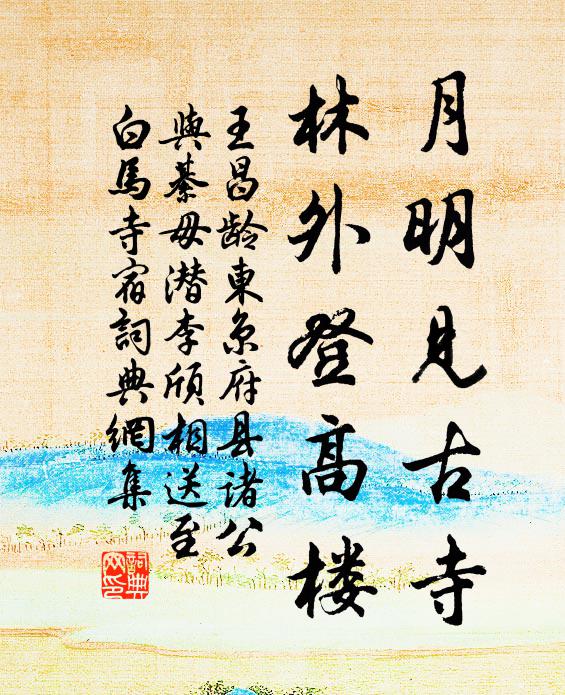 月明見古寺
林外登高楼
王昌龄東京府县诸公
與綦毋潜李颀相送至
白馬寺宿詞典網集
詞典